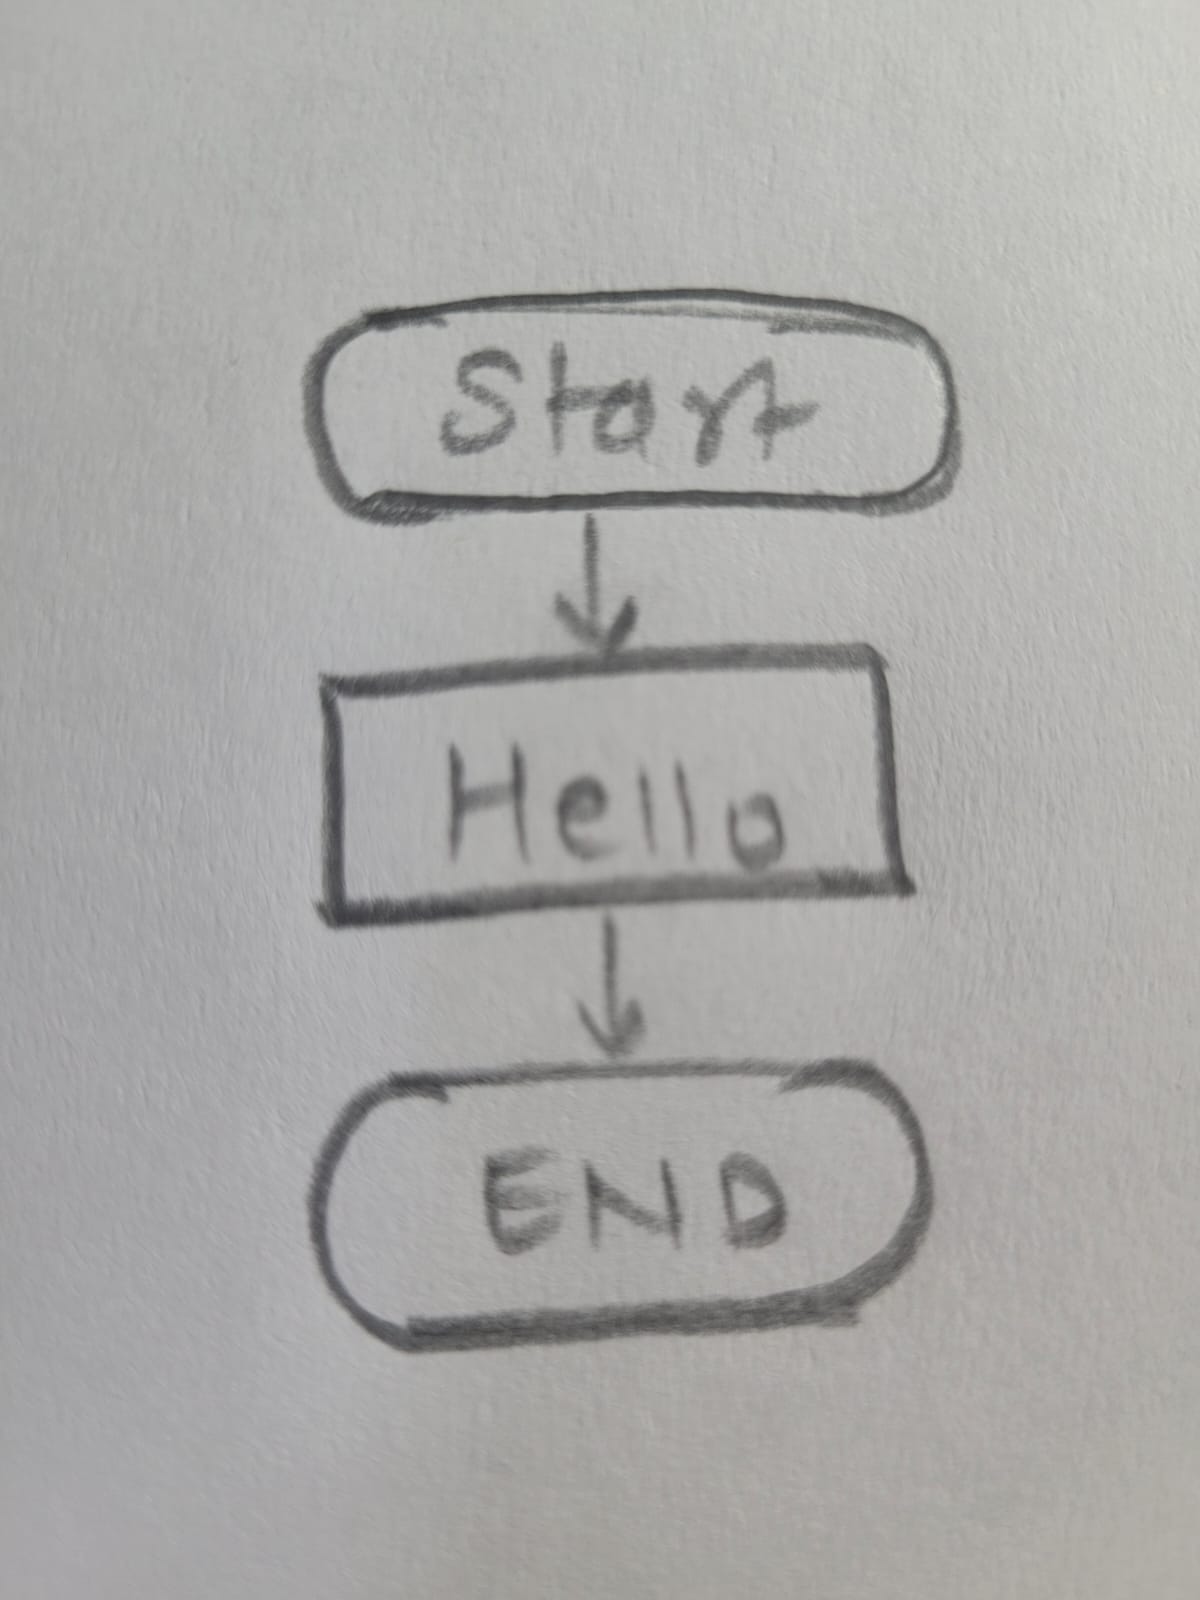 Start
Hello
END